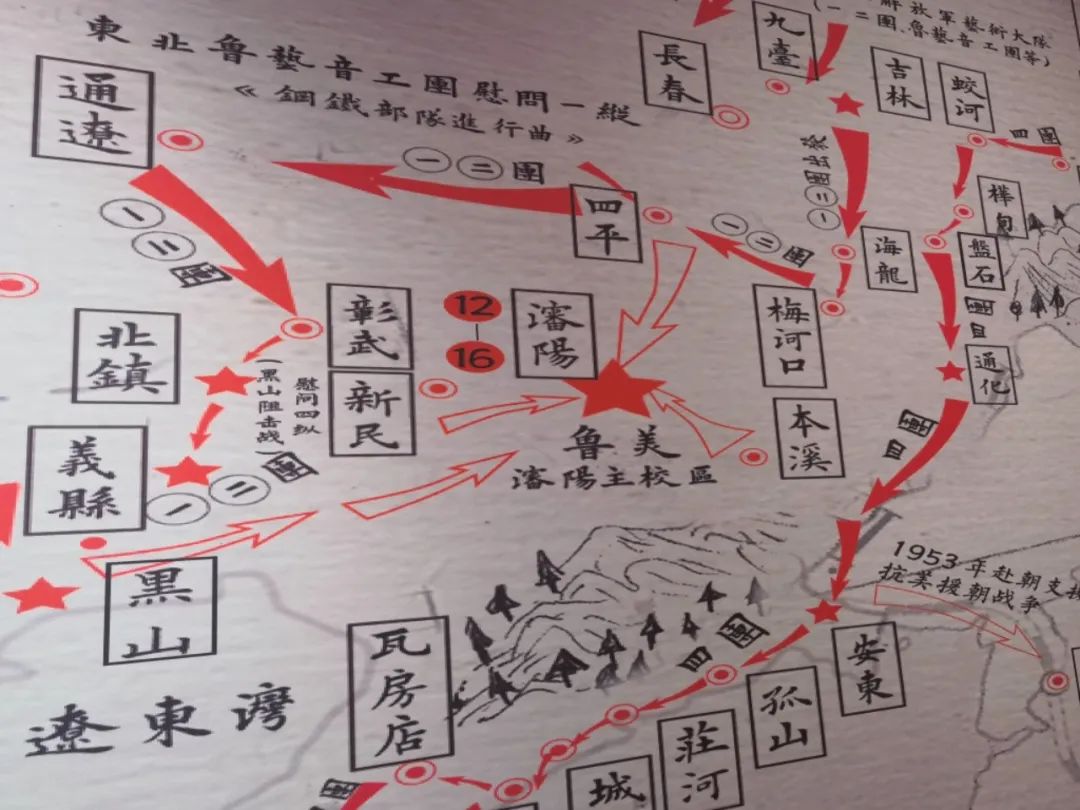 解放軍藝術大隊
(一二團、魯藝音工團等)
東北魯藝音工團慰問一縱
《鋼鐵部隊進行曲》
通遼
長春
九臺
吉林
蛟河
四團
一二團出發
一二團
四平
一二團
海龍
樺甸
盤石
四團
一二團
彰武
12
16
瀋陽
梅河口
通化
北鎮
新民
慰问四纵
(黑山阻击战)
本溪
四團
義縣
一二團
魯美
瀋陽主校區
黑山
1953年赴朝支援
抗美援朝战争
四團
安東
瓦房店
孤山
莊河
遼東灣
城
團